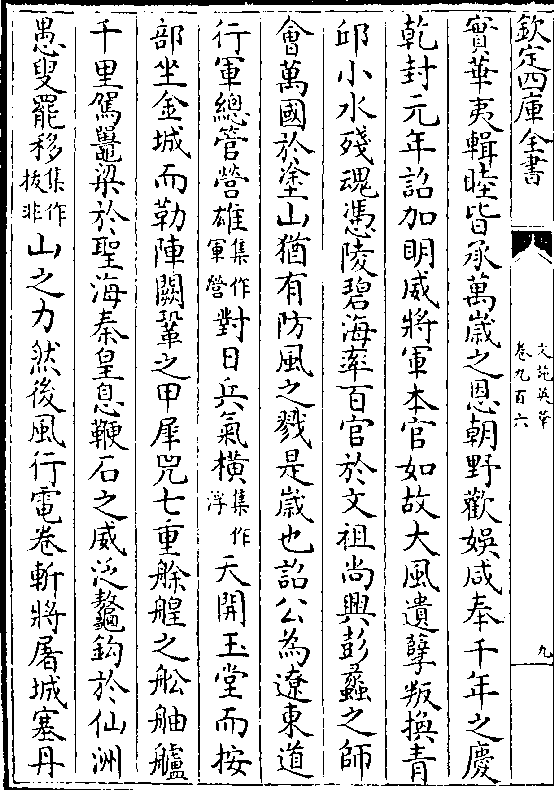 欽定四庫全書
文苑英華
卷九百六
九
實華夷輯睦皆承萬歲之恩朝野歡娛咸奉千年之慶
乾封元年詔加明威將軍本官如故大風遺孽叛換青
邱小水殘魂憑陵碧海率百官於文祖尚興彭蠡之師
會萬國於塗山猶有防風之戮是歲也詔公為遼東道
行軍總管營雄集作軍營對日兵氣橫集作浮天開玉堂而按
部坐金城而勒陣闕鞏之甲犀兕七重艅艎之舩舳艫
千里駕鼉梁於聖海秦皇息鞭石之威泛鼇鈎於仙洲
愚叟罷移集作拔非山之力然後風行電卷斬將屠城塞丹